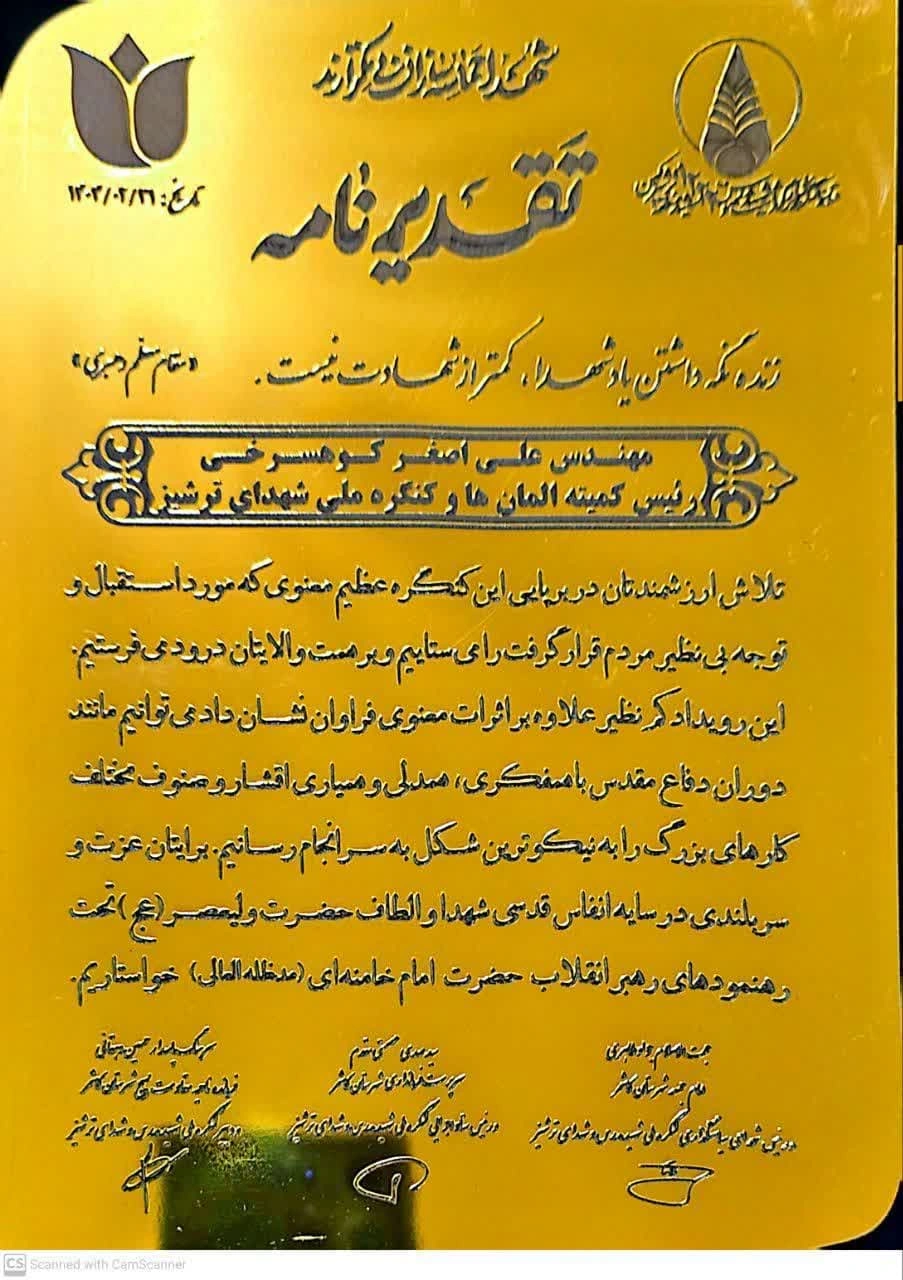 شهدا حماسه سازان بی تکرارند
تقدیرنامه
تاریخ: ۱۴۰۳/۰۲/۳۱
زنده نگه داشتن یاد شهدا، کمتر از شهادت نیست. «مقام معظم رهبری»
مهندس علی اصغر کوهسرخی
رئیس کمیته المان ها و کنگره ملی شهدای ترشیز
تلاش ارزشمندتان در برپایی این کنگره عظیم معنوی که مورد استقبال و
توجه بی نظیر مردم قرار گرفت را می ستاییم و بر همت والایتان درود می فرستیم.
این رویداد کم نظیر علاوه بر اثرات معنوی فراوان نشان داد می توانیم مانند
دوران دفاع مقدس با همفکری، همدلی و همیاری اقشار و صنوف مختلف
کارهای بزرگ را به نیکوترین شکل به سرانجام رسانیم. برایتان عزت و
سربلندی در سایه انفاس قدسی شهدا و الطاف حضرت ولیعصر (عج) تحت
رهنمودهای رهبر انقلاب حضرت امام خامنه ای (مدظله العالی) خواستاریم.
حجت الاسلام
امام جمعه شهرستان کاشمر
و رئیس شورای سیاستگذاری کنگره ملی شهید مدرس و شهدای ترشیز
سید مهدی
سرپرست فرمانداری شهرستان کاشمر
و رئیس ستاد اجرایی کنگره ملی شهید مدرس و شهدای ترشیز
سرهنگ پاسدار حسین
فرمانده ناحیه مقاومت بسیج شهرستان کاشمر
و دبیر کنگره ملی شهید مدرس و شهدای ترشیز
CS Scanned with CamScanner